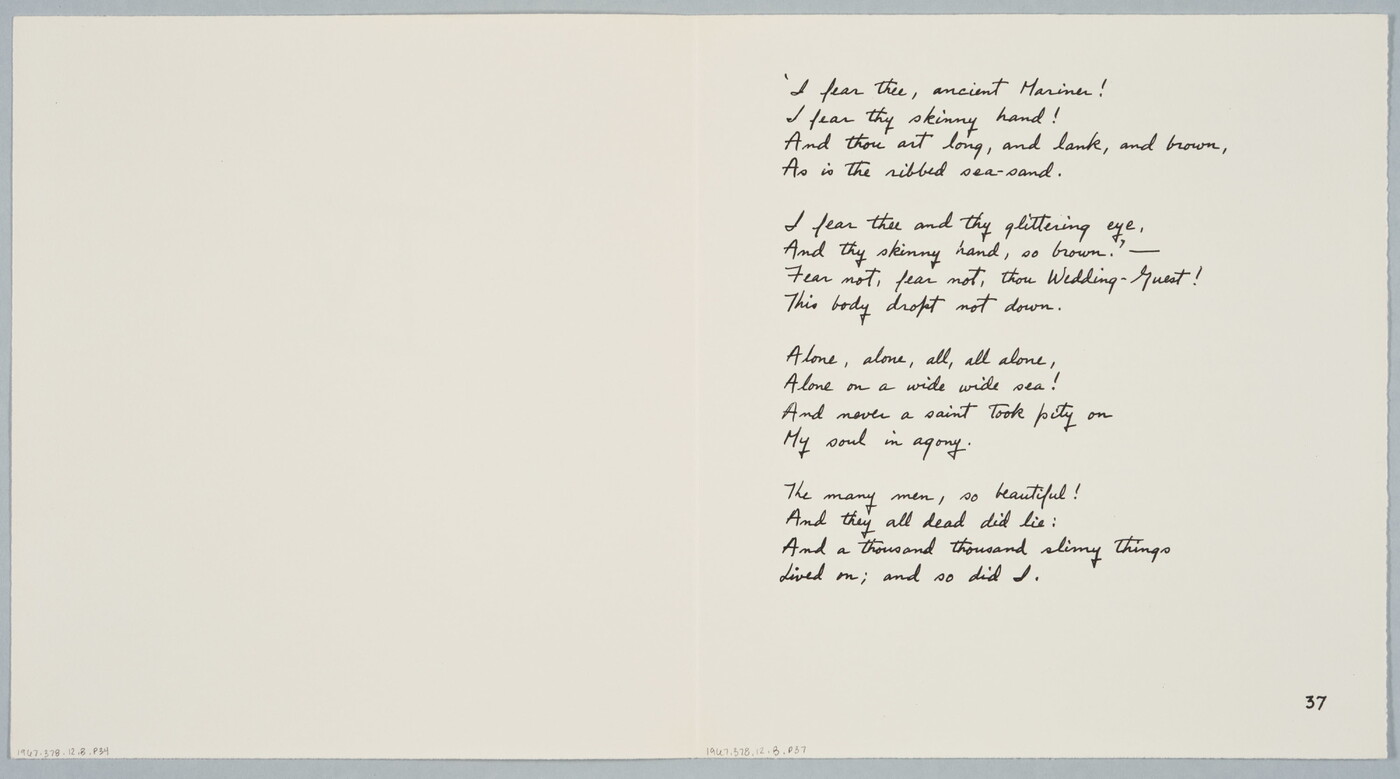 'I fear thee, ancient Mariner!
I fear thy skinny hand!
And thou art long, and lank, and brown,
As is the ribbed sea-sand.
I fear thee and thy glittering eye,
And thy skinny hand, so brown.'—
Fear not, fear not, thou Wedding-Guest!
This body dropt not down.
Alone, alone, all, all alone,
Alone on a wide wide sea!
And never a saint took pity on
My soul in agony.
The many men, so beautiful!
And they all dead did lie:
And a thousand thousand slimy things
Lived on; and so did I.
37
1967.378.12.B.P34
1967.378.12.B.P37